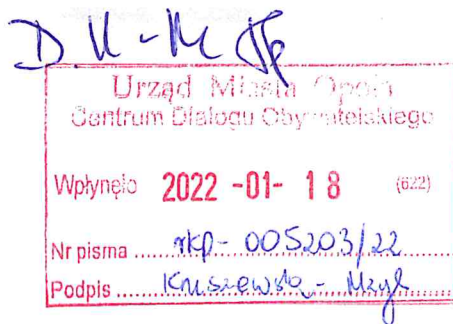 D. K-M
Urząd Miasta Opola
Centrum Dialogu Obywatelskiego
Wpłynęło 2022 -01- 18 (622)
Nr pisma ........ rkp- 005203/22
Podpis ...... Kruszewska - Mzyk